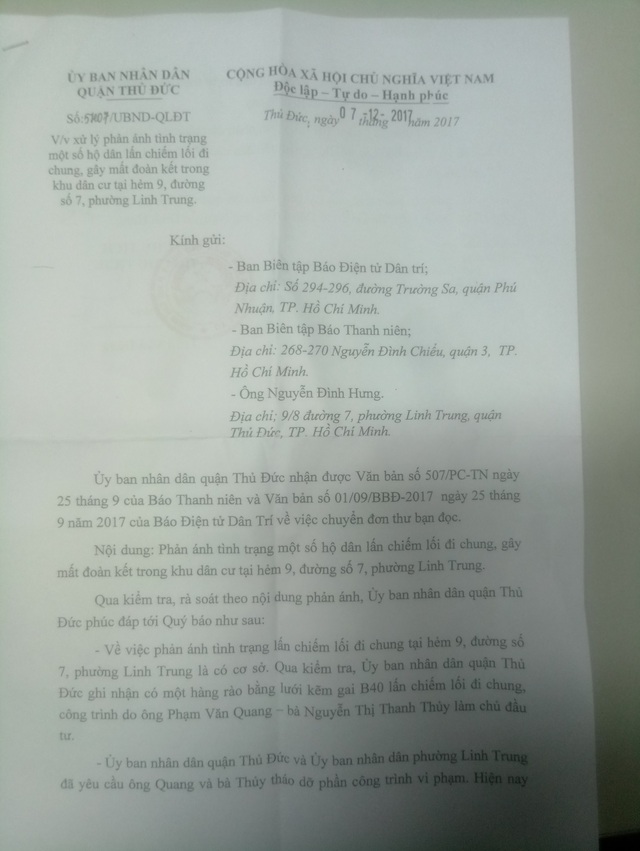 ỦY BAN NHÂN DÂN
QUẬN THỦ ĐỨC
CỘNG HÒA XÃ HỘI CHỦ NGHĨA VIỆT NAM
Độc lập – Tự do – Hạnh phúc
Số: /UBND-QLĐT
Thủ Đức, ngày 07 tháng -12- 2017 năm 2017
V/v xử lý phản ánh tình trạng
một số hộ dân lấn chiếm lối đi
chung, gây mất đoàn kết trong
khu dân cư tại hẻm 9, đường
số 7, phường Linh Trung.
Kính gửi:
- Ban Biên tập Báo Điện tử Dân trí;
Địa chỉ: Số 294-296, đường Trường Sa, quận Phú
Nhuận, TP. Hồ Chí Minh.
- Ban Biên tập Báo Thanh niên;
Địa chỉ: 268-270 Nguyễn Đình Chiểu, quận 3, TP.
Hồ Chí Minh.
- Ông Nguyễn Đình Hưng.
Địa chỉ: 9/8 đường 7, phường Linh Trung, quận
Thủ Đức, TP. Hồ Chí Minh.
Ủy ban nhân dân quận Thủ Đức nhận được Văn bản số 507/PC-TN ngày
25 tháng 9 của Báo Thanh niên và Văn bản số 01/09/BBĐ-2017 ngày 25 tháng
9 năm 2017 của Báo Điện tử Dân Trí về việc chuyển đơn thư bạn đọc.
Nội dung: Phản ánh tình trạng một số hộ dân lấn chiếm lối đi chung, gây
mất đoàn kết trong khu dân cư tại hẻm 9, đường số 7, phường Linh Trung.
Qua kiểm tra, rà soát theo nội dung phản ánh, Ủy ban nhân dân quận Thủ
Đức phúc đáp tới Quý báo như sau:
- Về việc phản ánh tình trạng lấn chiếm lối đi chung tại hẻm 9, đường số
7, phường Linh Trung là có cơ sở. Qua kiểm tra, Ủy ban nhân dân quận Thủ
Đức ghi nhận có một hàng rào bằng lưới kẽm gai B40 lấn chiếm lối đi chung,
công trình do ông Phạm Văn Quang – bà Nguyễn Thị Thanh Thúy làm chủ đầu
tư.
- Ủy ban nhân dân quận Thủ Đức và Ủy ban nhân dân phường Linh Trung
đã yêu cầu ông Quang và bà Thúy tháo dỡ phần công trình vi phạm. Hiện nay